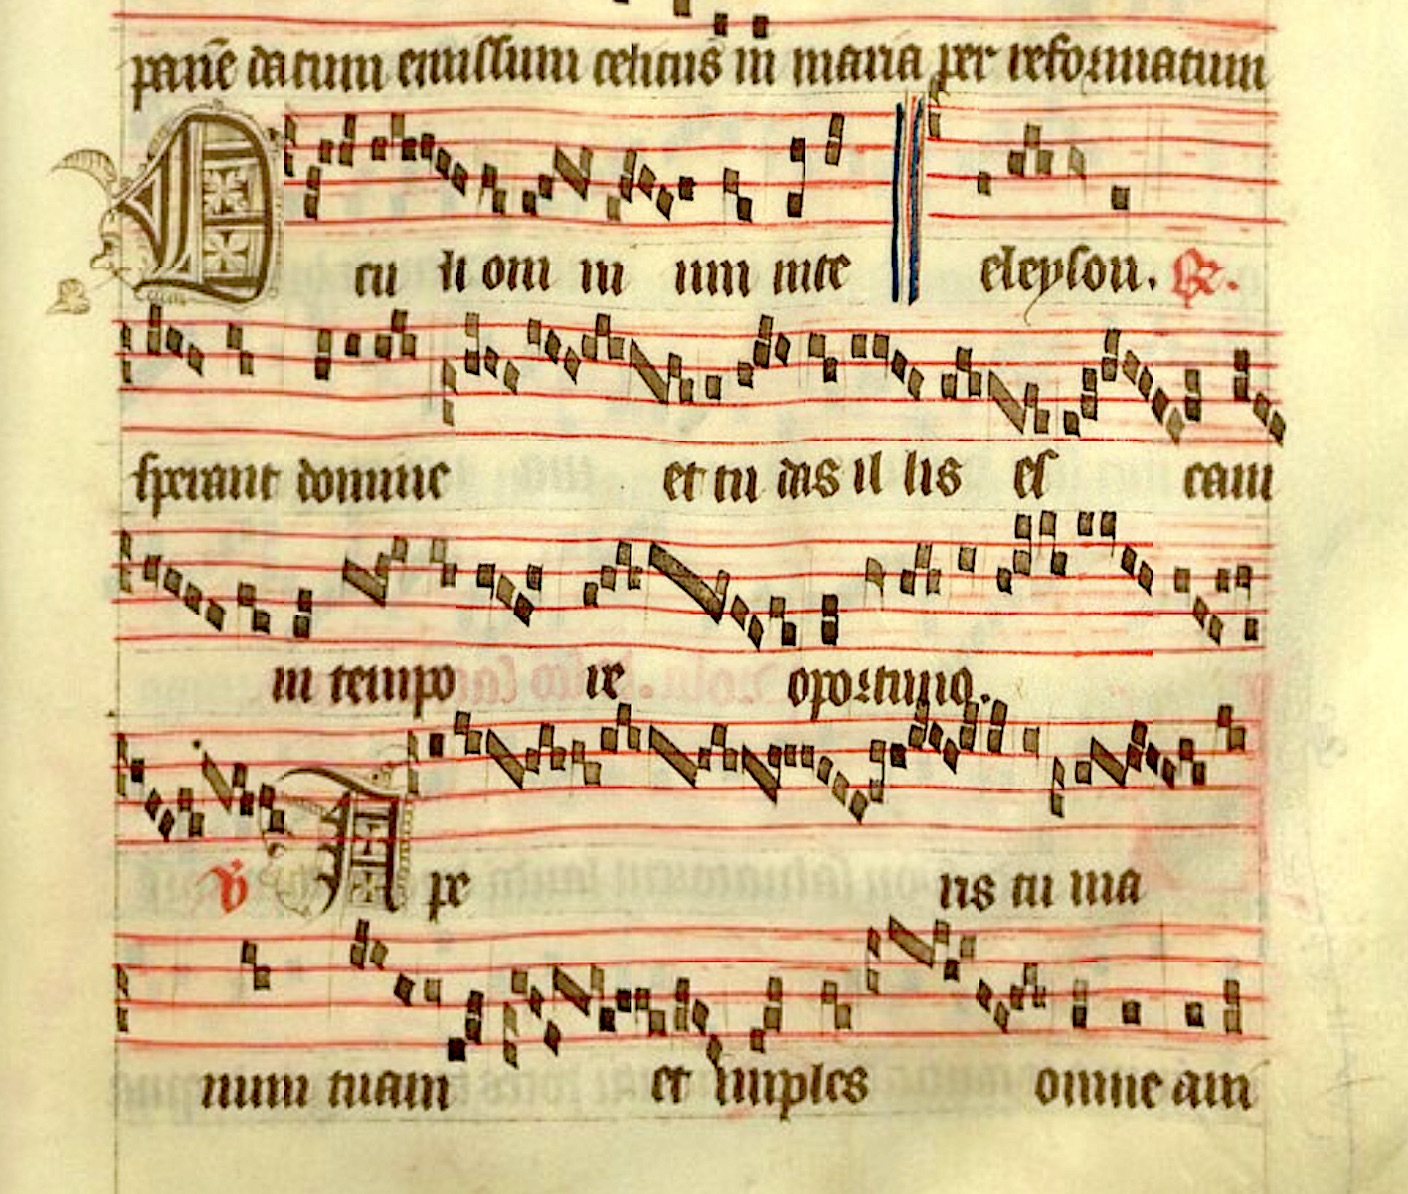 panē datum emissum celitus in maria per reformatum
Ocu li om ni um in te eleyson. R.
sperant domine et tu das il lis es cam
in tempo re oportuno.
V Ape ris tu ma
num tuam et imples omne ani